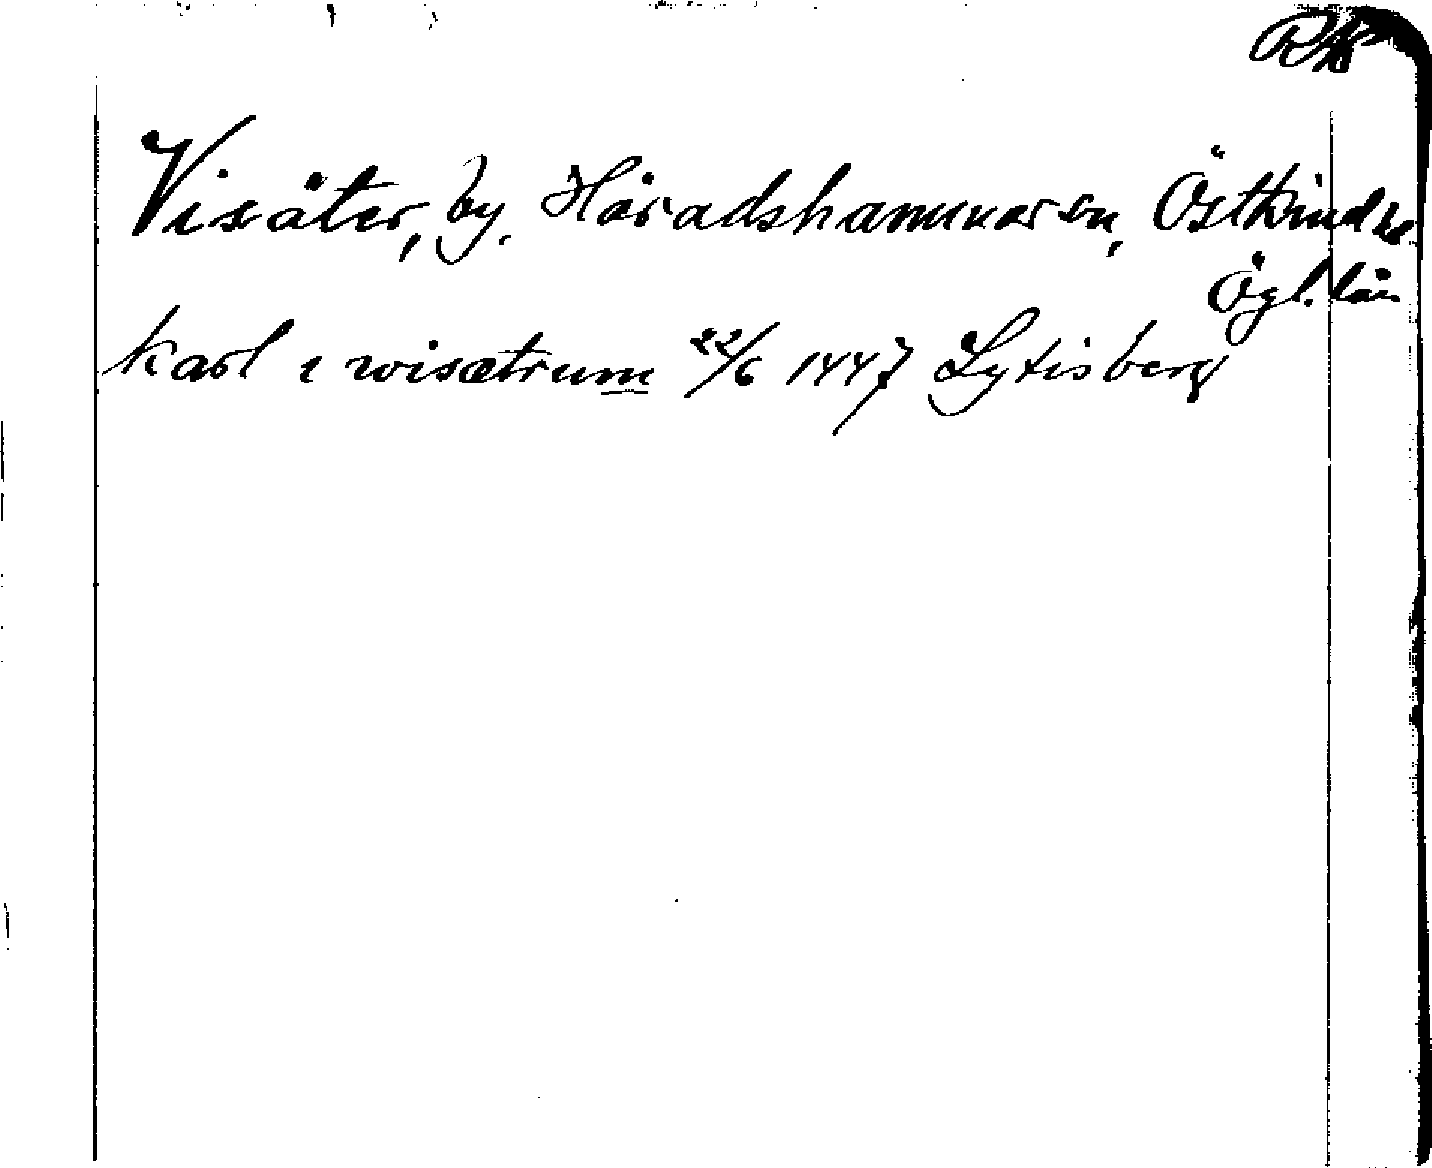 RAp
Visäter, by, Häradshammar sn, Östkinds hd
Ögl. län
karl i wisætrum 22/6 1447 Lytisberg